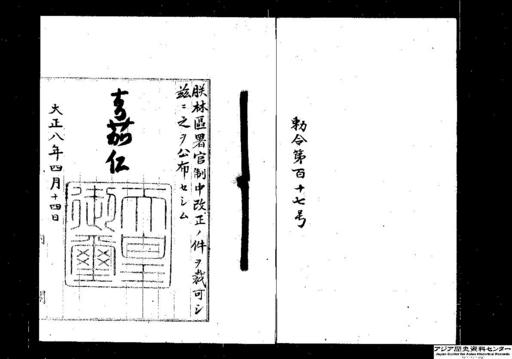 勅令第百十七号
朕林區署官制中改正ノ件ヲ裁可シ
茲ニ之ヲ公布セシム
嘉仁
天皇御璽
大正八年四月十四日
内閣
アジア歴史資料センター
Japan Center for Asian Historical Records